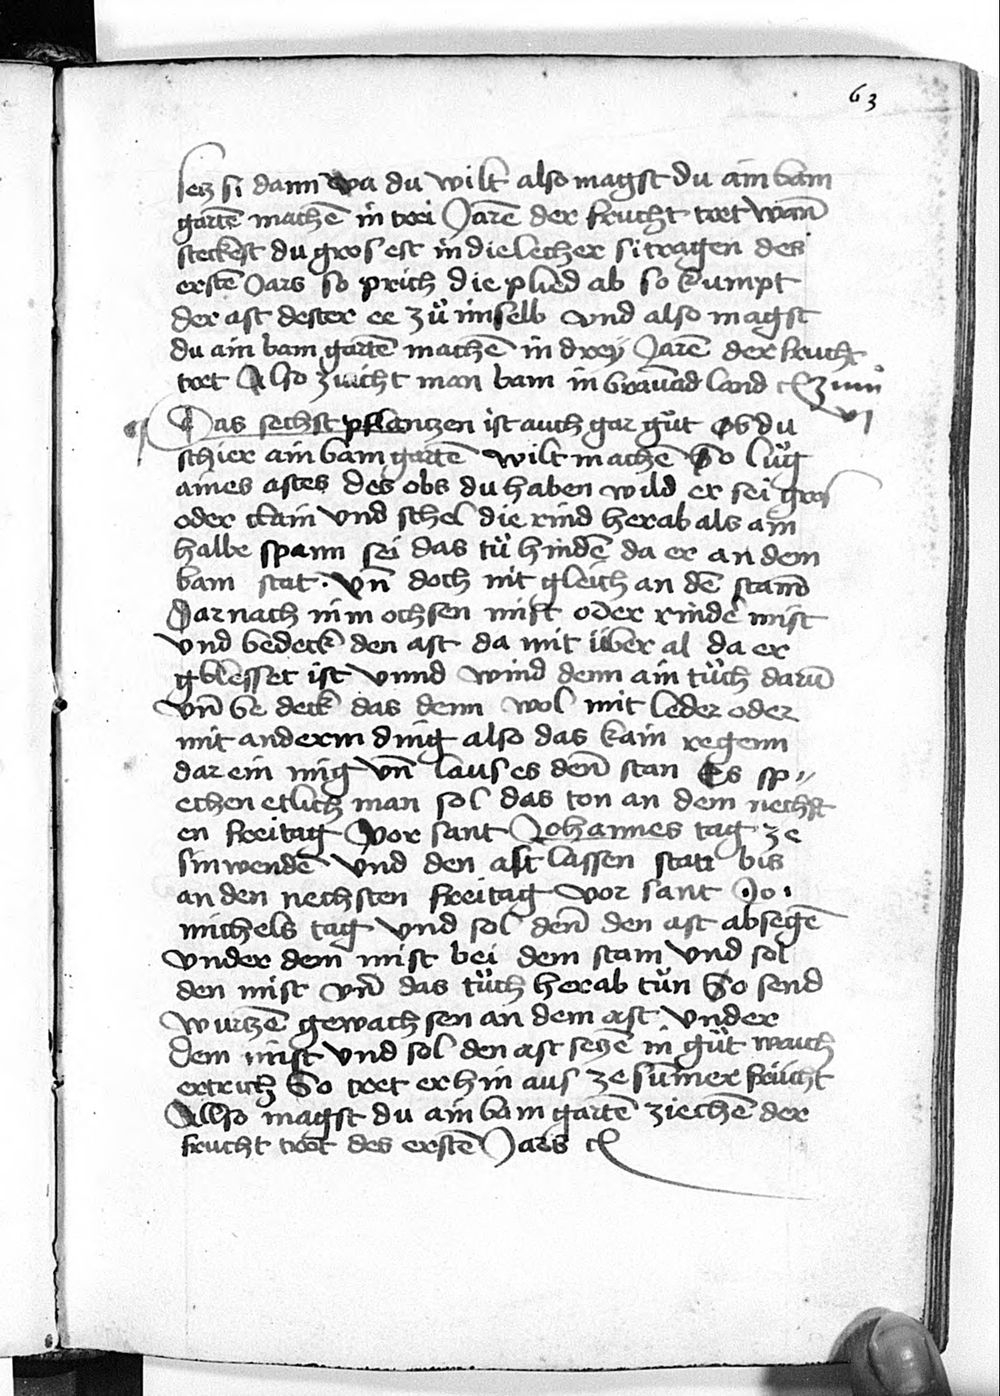 63
setz si dann wa du wilt also magst du ain bam
gartē machē in drei Jarē der frucht tret wañ
steckest du gros est in die lecher si tragen des
erstē Jars so prich die plied ab so kumpt
der ast dester ee zů im selb vnd also magst
du ain bam gartē machē in dreÿ Jarē der frucht
tret Also zuicht man bam in land zum
vj
Das sechst pflantzen ist auch gar gůt Ob du
schier ain bam gartē wilt machē So lůg
aines astes des obs du haben wild er sei gros
oder clain vnd schel die rind herab als ain
halbe spann sei das tů hindē da er an dem
bam stat. vn̄ doch nit gleich an dē stam
Darnach nim ochsen mist oder rinderˀ mist
vnd bedeck den ast da mit über al da er
gblesset ist vnnd wind denn ain tůch darū
vn̄ be deck das denn wol mit leder oder
mit anderm ding also das kain regenn
dar ein mig vn̄ laus es deñ stan Es sp//
echen etlich man sol das ton an dem nechst
en freitag vor sant Johannes tag ze
sinwendē vnd den ast lassen stan bis
an den nechsten freitag vor sant .Jo.
michels tag vnd sol deñ den ast absegē
vnder dem mist bei dem stam vnd sol
den mist vn̄ das tůch herab tůn So send
wurtzē gewachsen an dem ast vnder
dem mist vnd sol den ast setzē in gůt waich
ertrich So tret er hin aus ze sum̄er frücht
Also magst du ain bam gartē ziechē der
frucht tret des erstē Jars